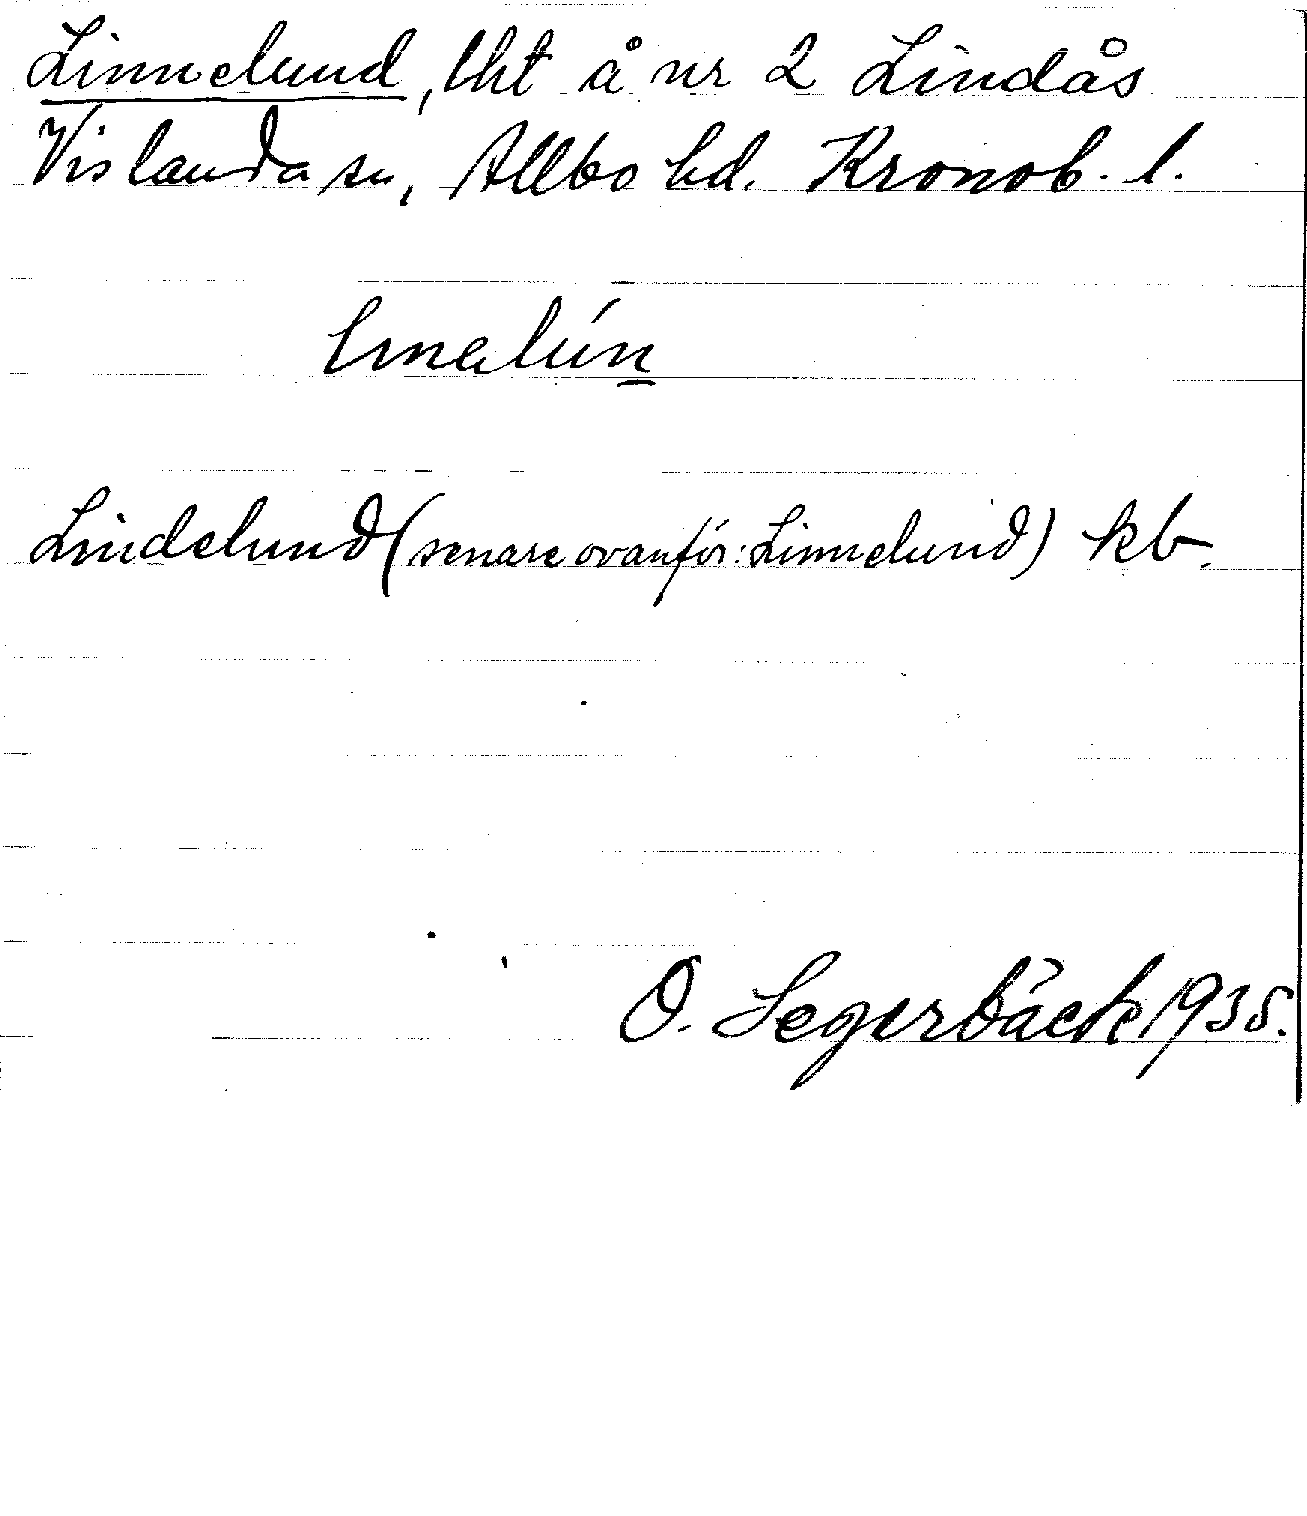 Linnelund, lht å nr 2 Lindås
Vislanda sn, Allbo hd. Kronob. l.
Lindelund (senare ovanför: Linnelund) kb.
O. Segerbäck 1935.